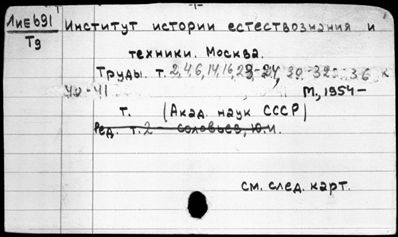 ЛиЕ691
Т9
Институт истории естествознания и
техники. Москва.
Труды. т. 2,4,6,14,16,23-24, 30-32 36 к
40-41 М., 1954-
т. (Акад. наук СССР)
Ред. т. 2 Соловьев, Ю.И.
см. след. карт.